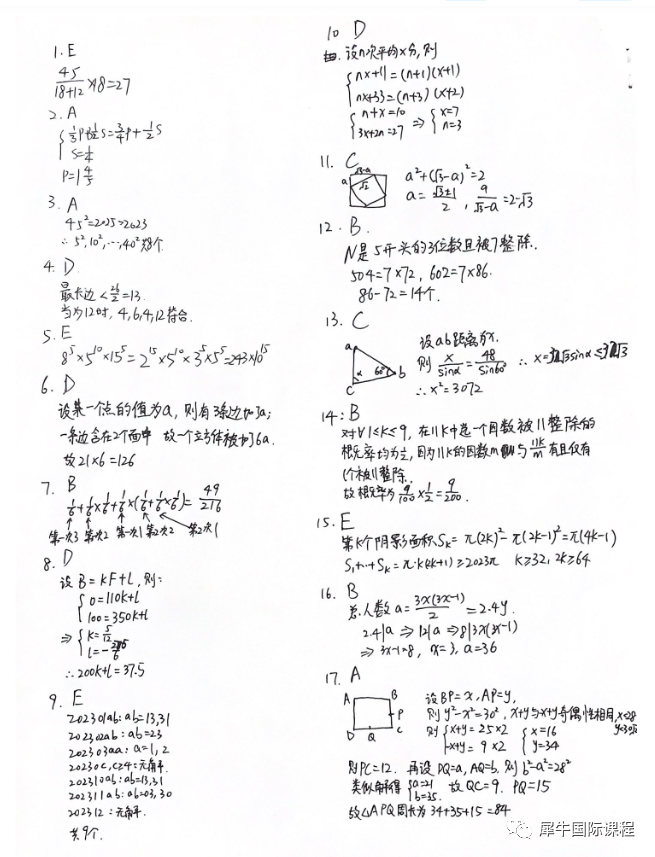 1. E
45/(18+12) ×18=27
2. A
{ 1/3P+1/2S=3/4P+1/2S
S=1/4
3. A
45²=2025>2023
∴ 5², 10², ⋯, 40² 共8个.
4. D
最长边 < 26/2=13.
当为12时, 4, 6, 4, 12 符合.
5. E
8⁵×5¹⁰×15⁵=2¹⁵×5¹⁰×3⁵×5⁵=243×10¹⁵
6. D
设某一个点的值为a, 则有3条边加了a;
一条边含在2个面中 故一个立方体被加6a.
故21×6=126
7. B
1/6+1/6×1/6+1/6×(1/6+1/6×1/6)=49/216
第一次3 第一次2 第一次1 第二次2 第二次1
8. D
设 B=kF+l, 则:
{ 0=110k+l
100=350k+l
⇒ { k=5/12
∴ 200k+l=37.5
9. E
202301ab: ab=13,31
202302ab: ab=23
202303aa: a=1, 2
20230c, c≥4: 无解.
202310ab: ab=13,31
202311ab: ab=03,30
202312: 无解.
共9个.
10 D
设n次平均x分, 则
{ nx+11=(n+1)(x+1)
nx+33=(n+3)(x+2)
{ n+x=10
3x+2n=27 ⇒ { x=7
n=3
11. C
√3-a
a √2
a²+(√3-a)²=2
a=(√3±1)/2, a/(√3-a)=2-√3
12. B.
N是5开头的3位数且被7整除.
504=7×72, 602=7×86.
86-72=14个.
13. C
a
α 60° b
c
设ab距离为x.
则 x/sinα=48/sin60°
∴ x²=3072
14: B
对∀1≤k≤9, 在11k中选一个因数被11整除的
概率均为1/2, 因为11k的因数m与11k/m有且仅有
1个被11整除.
故概率为9/100×1/2=9/200.
15. E
第k个阴影面积Sₖ=π(2k)²-π(2k-1)²=π(4k-1)
S₁+⋯+Sₖ=π·k(2k+1)≥2023π k≥32, 2k≥64
16. B
总人数a=3x(3x-1)/2=2.4y.
2.4|a ⇒ 12|a ⇒ 8|3x(3x-1)
⇒ 3x-1=8, x=3, a=36
17. A
A B
P
D Q C
设BP=x, AP=y,
则y²-x²=30², x+y与x+y奇偶性相同,
则 { x+y=25×2
-x+y=9×2
{ x=16
y=34
则PC=12. 再设DQ=a, AQ=b. 则b²-a²=28²
类似解得 { a=21
b=35. 故QC=9. PQ=15
故△APQ周长为34+35+15=84
犀牛国际课程